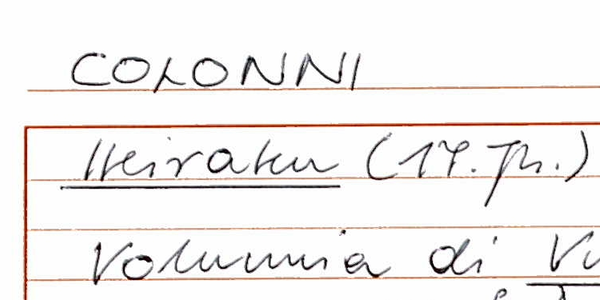 COLONNI
Heiraten (17. Jh.)
Volumnia di